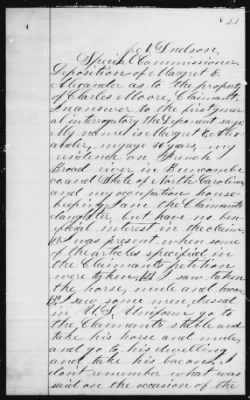 Special Commissioner
Deposition of Margret E
Alexander as to the property
of Charles Moore, Claimant.
In answer to the first gener
al interrogatory the Deponent says
My name is Margret E Alex
ander, my age years, my
residence on French
Broad river in Buncombe
co and State of North Carolina
and my occupation house
keeping, I am the Claimants
daughter, but have no ben
eficial interest in the claim,
I was present when some
of the articles specified in
the Claimants petition
were taken. I saw taken
the horse, mule and bacon.
I saw some men, dressed
in U.S. Uniform go to
the Claimants stable and
take his horse and mule,
and go to his dwelling
and take his bacon, I
don't remember what was
said on the occasion of the